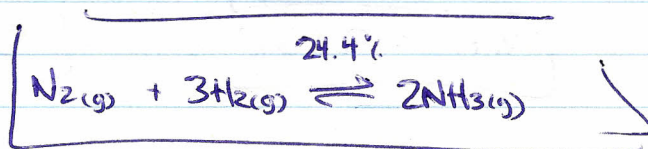 24.4%
N2(g) + 3H2(g) ⇌ 2NH3(g)